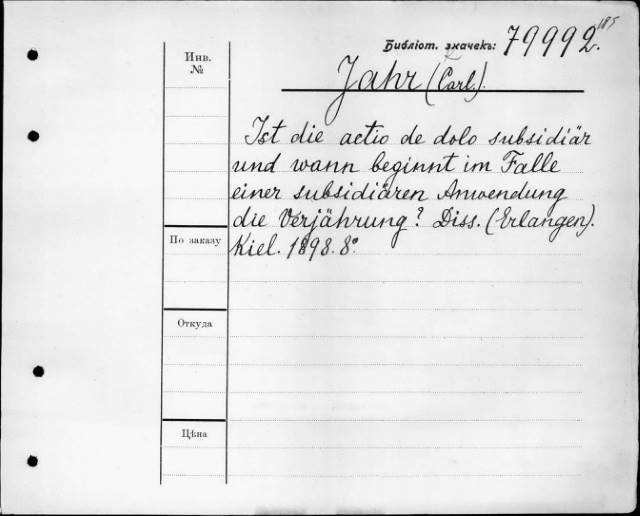 185
Библіот. значекъ: 79992.
Инв.
№
Jahr (Carl.).
Ist die actio de dolo subsidiär
und wann beginnt im Falle
einer subsidiären Anwendung
die Verjährung? Diss. (Erlangen).
Kiel. 1898. 8º.
По заказу
Откуда
Цѣна